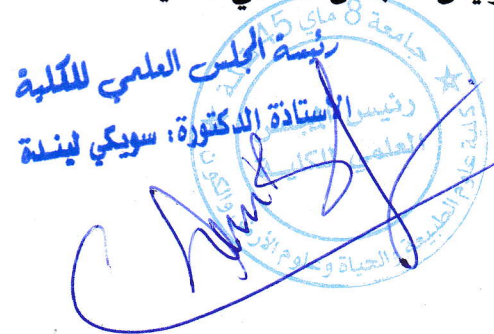 رئيسة المجلس العلمي للكلية
الأستاذة الدكتورة: سويكي ليندة
جامعة 8 ماي 45
رئيس
العلمي للكلية
كلية علوم الطبيعة والحياة وعلوم الأرض والكون